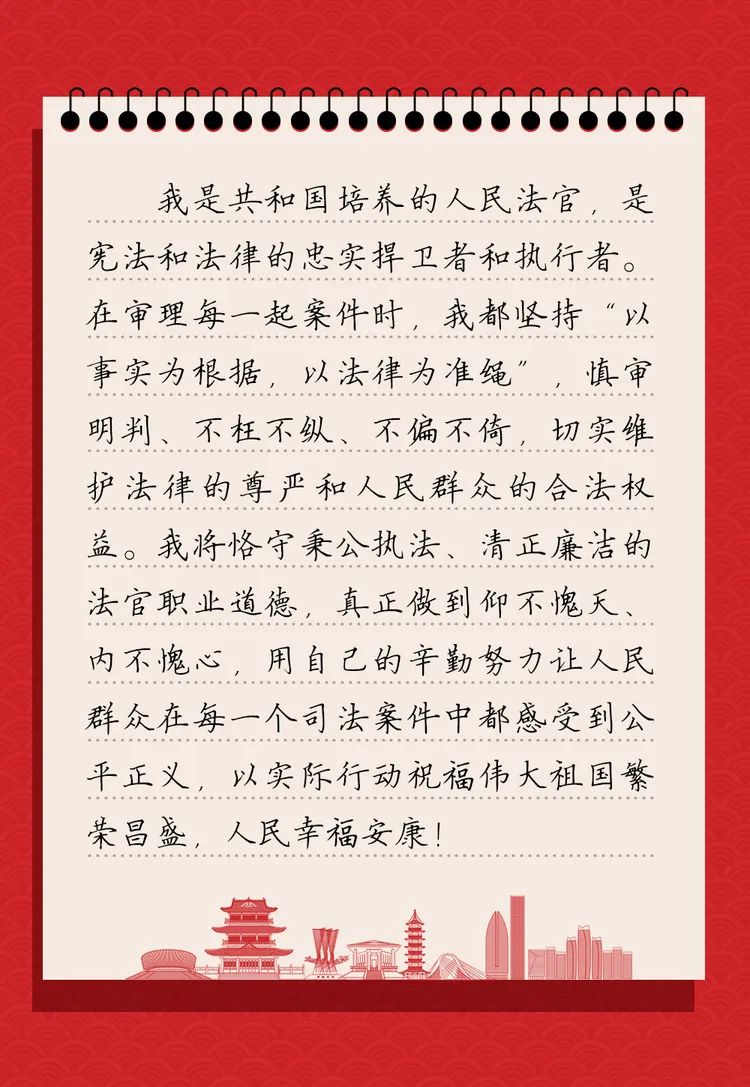 我是共和国培养的人民法官，是
宪法和法律的忠实捍卫者和执行者。
在审理每一起案件时，我都坚持“以
事实为根据，以法律为准绳”，慎审
明判、不枉不纵、不偏不倚，切实维
护法律的尊严和人民群众的合法权
益。我将恪守秉公执法、清正廉洁的
法官职业道德，真正做到仰不愧天、
内不愧心，用自己的辛勤努力让人民
群众在每一个司法案件中都感受到公
平正义，以实际行动祝福伟大祖国繁
荣昌盛，人民幸福安康！